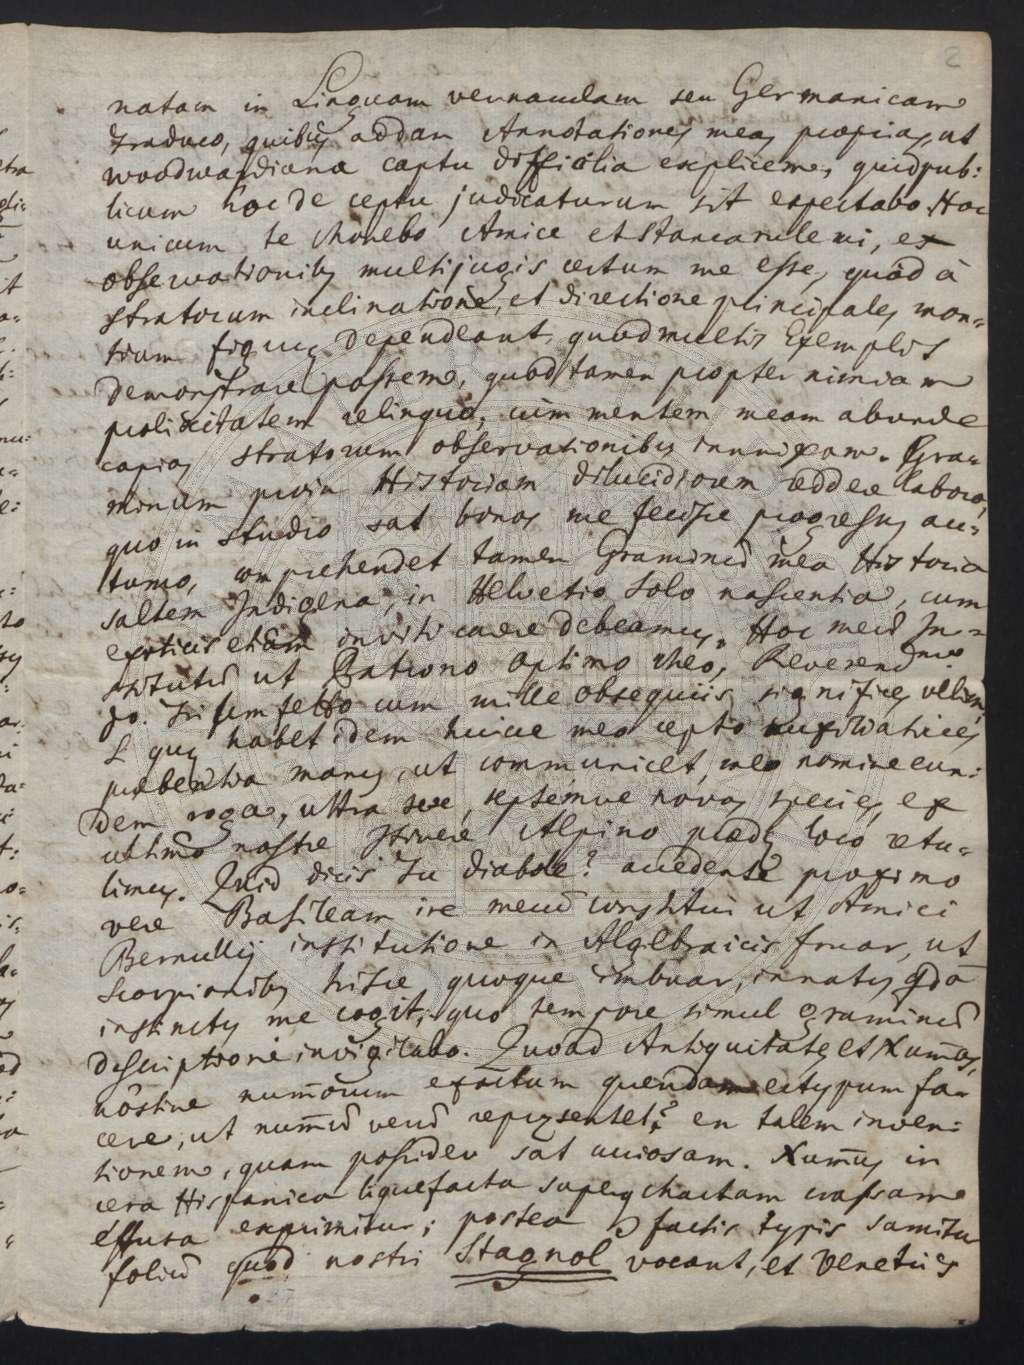 natam in Linguam vernaculam seu Germanicam
traduco, quibus addam Annotationes meas proprias, ut
woodwardiana captu difficilia explicem, quid pub:
licum hoc de ceptu judicaturum sit expectabo. Hoc
unicum te Monebo Amice, ex
observationibus multijugis certum me esse, quod à
stratorum inclinatione, et directione principales mon=
tium figuras dependeant, quod multis Exemplis
demonstrare possem, quod tamen propter nimiam
prolixitatem relinquo, cum mentem meam abunde
capias stratorum observationibus innixam. Gra=
minum porro Historiam dilucidiorem reddere laboro,
quo in studio sat bonos me fecisse progressus au=
tumo, comprehendet tamen Graminum mea Historia
saltem Indigena, in Helvetio solo nascentia, cum
exoticis etiam invitis carere debeamus. Hoc meum In=
stitutum ut Patrono optimo meo, Reverendmo
Do. cum mille obsequiis significes velim,
& quas habet idem huic meo cepto auxiliatrices
praebentia manus, ut communicet, meo nomine eun:
dem roga, ultra sex, septemve novas species, ex
ultimo nostro itinere Alpino praedo loco retu=
limus. Quid dicis Tu diabole? accedente proximo
vere Basileam ire mecum constitui ut Amici
Bernullij institutione in Algebraicis fruar, ut
scorpionibus hisce quoque imbuar, innatus qdā
instinctus me cogit, quo tempore simul graminum
descriptioni invigilabo. Quoad Antiquitates et Num̄os,
nostine num̄orum exactum quendam ectypum fa=
cere, ut num̄um verum repraesentet? en talem inven:
tionem, quam possideo sat curiosam. Num̄us in
cera Hispanica liquefacta super chartam crassam
effusa exprimitur; postea factis typis sumitur
folium quod nostri Stagnol vocant, et Venetiis